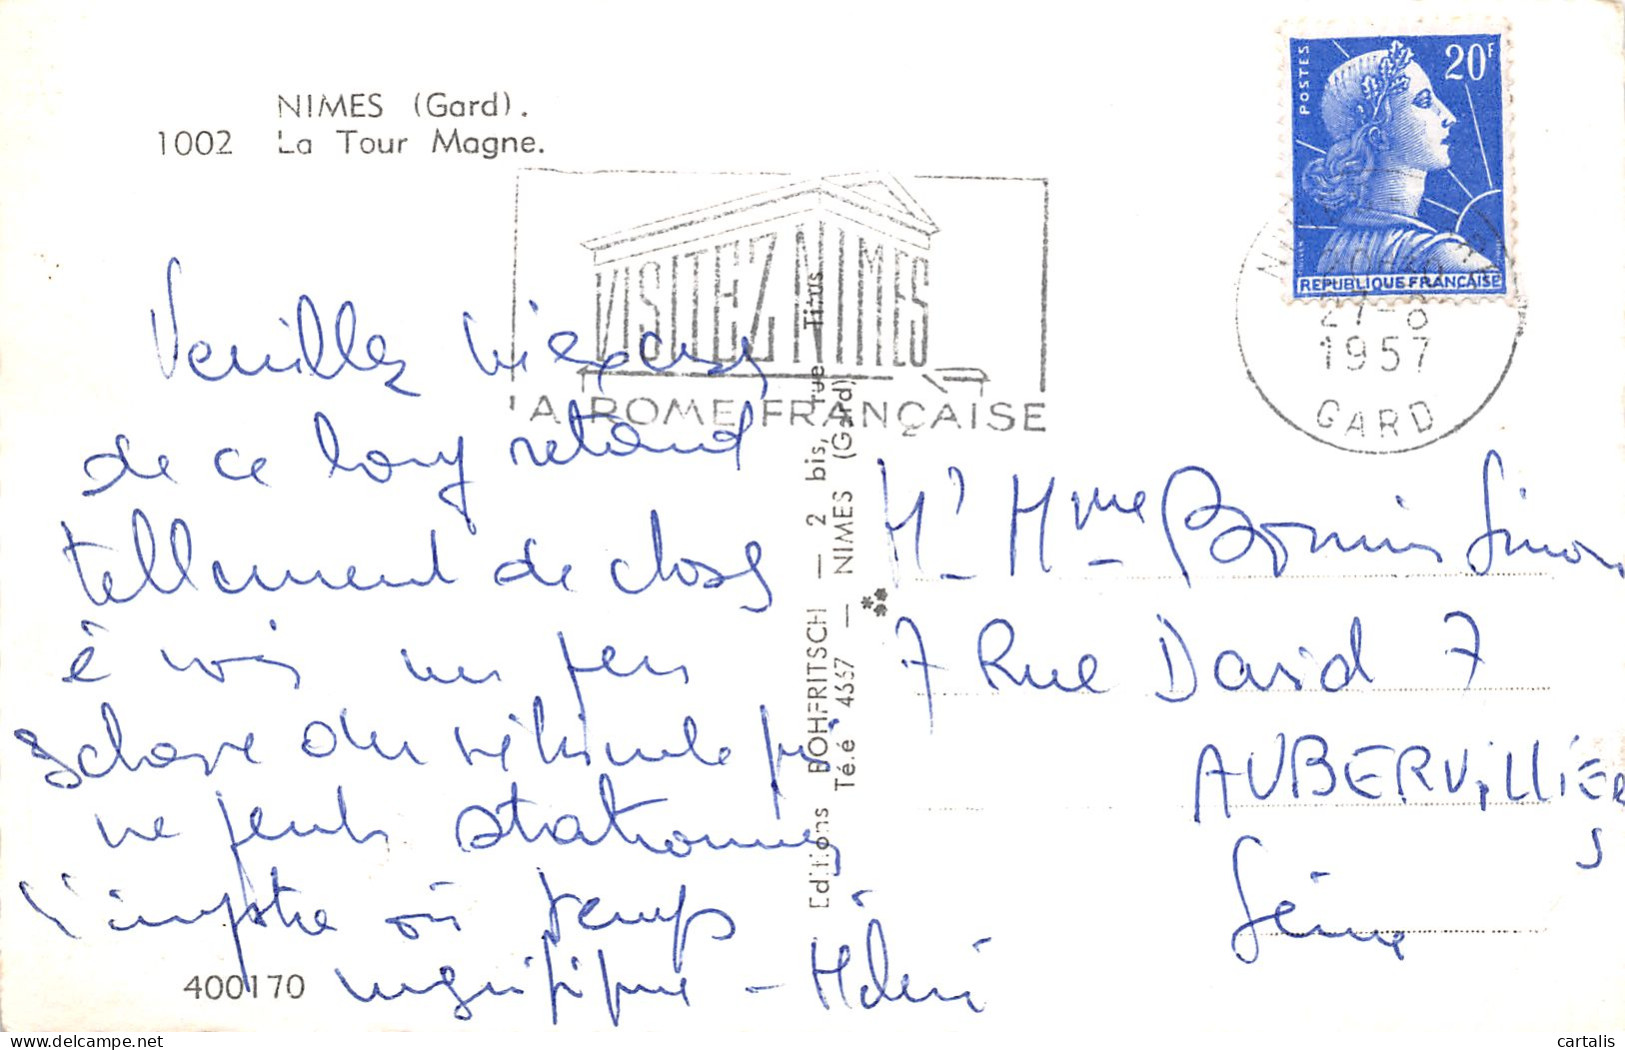 NIMES (Gard).
1002 La Tour Magne.
POSTES
20F
REPUBLIQUE FRANÇAISE
VISITEZ NIMES
LA ROME FRANÇAISE
27-8
1957
GARD
Veuillez m'excuser
de ce long retard
tellement de choses
à voir un peu
esclave du véhicule qui
ne peut stationner
n'importe où temps
magnifique -
Editions BOHFRITSCH — 2 bis, rue Titus
Té.é 4667 — NIMES (Gard)
Mr Mme Simon
7 Rue David 7
AUBERVILLIERS
Seine
400170
cartalis